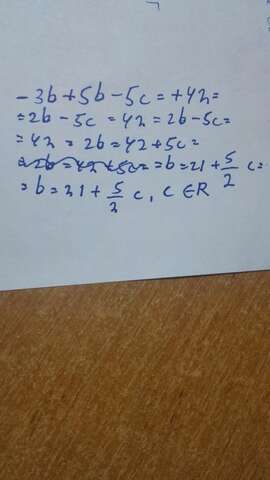 -3b+5b-5c=+42=
=2b-5c=42=2b-5c=
=42=2b=42+5c=
=b=21+5/2 c=
=b=21+5/2 c, c∈R